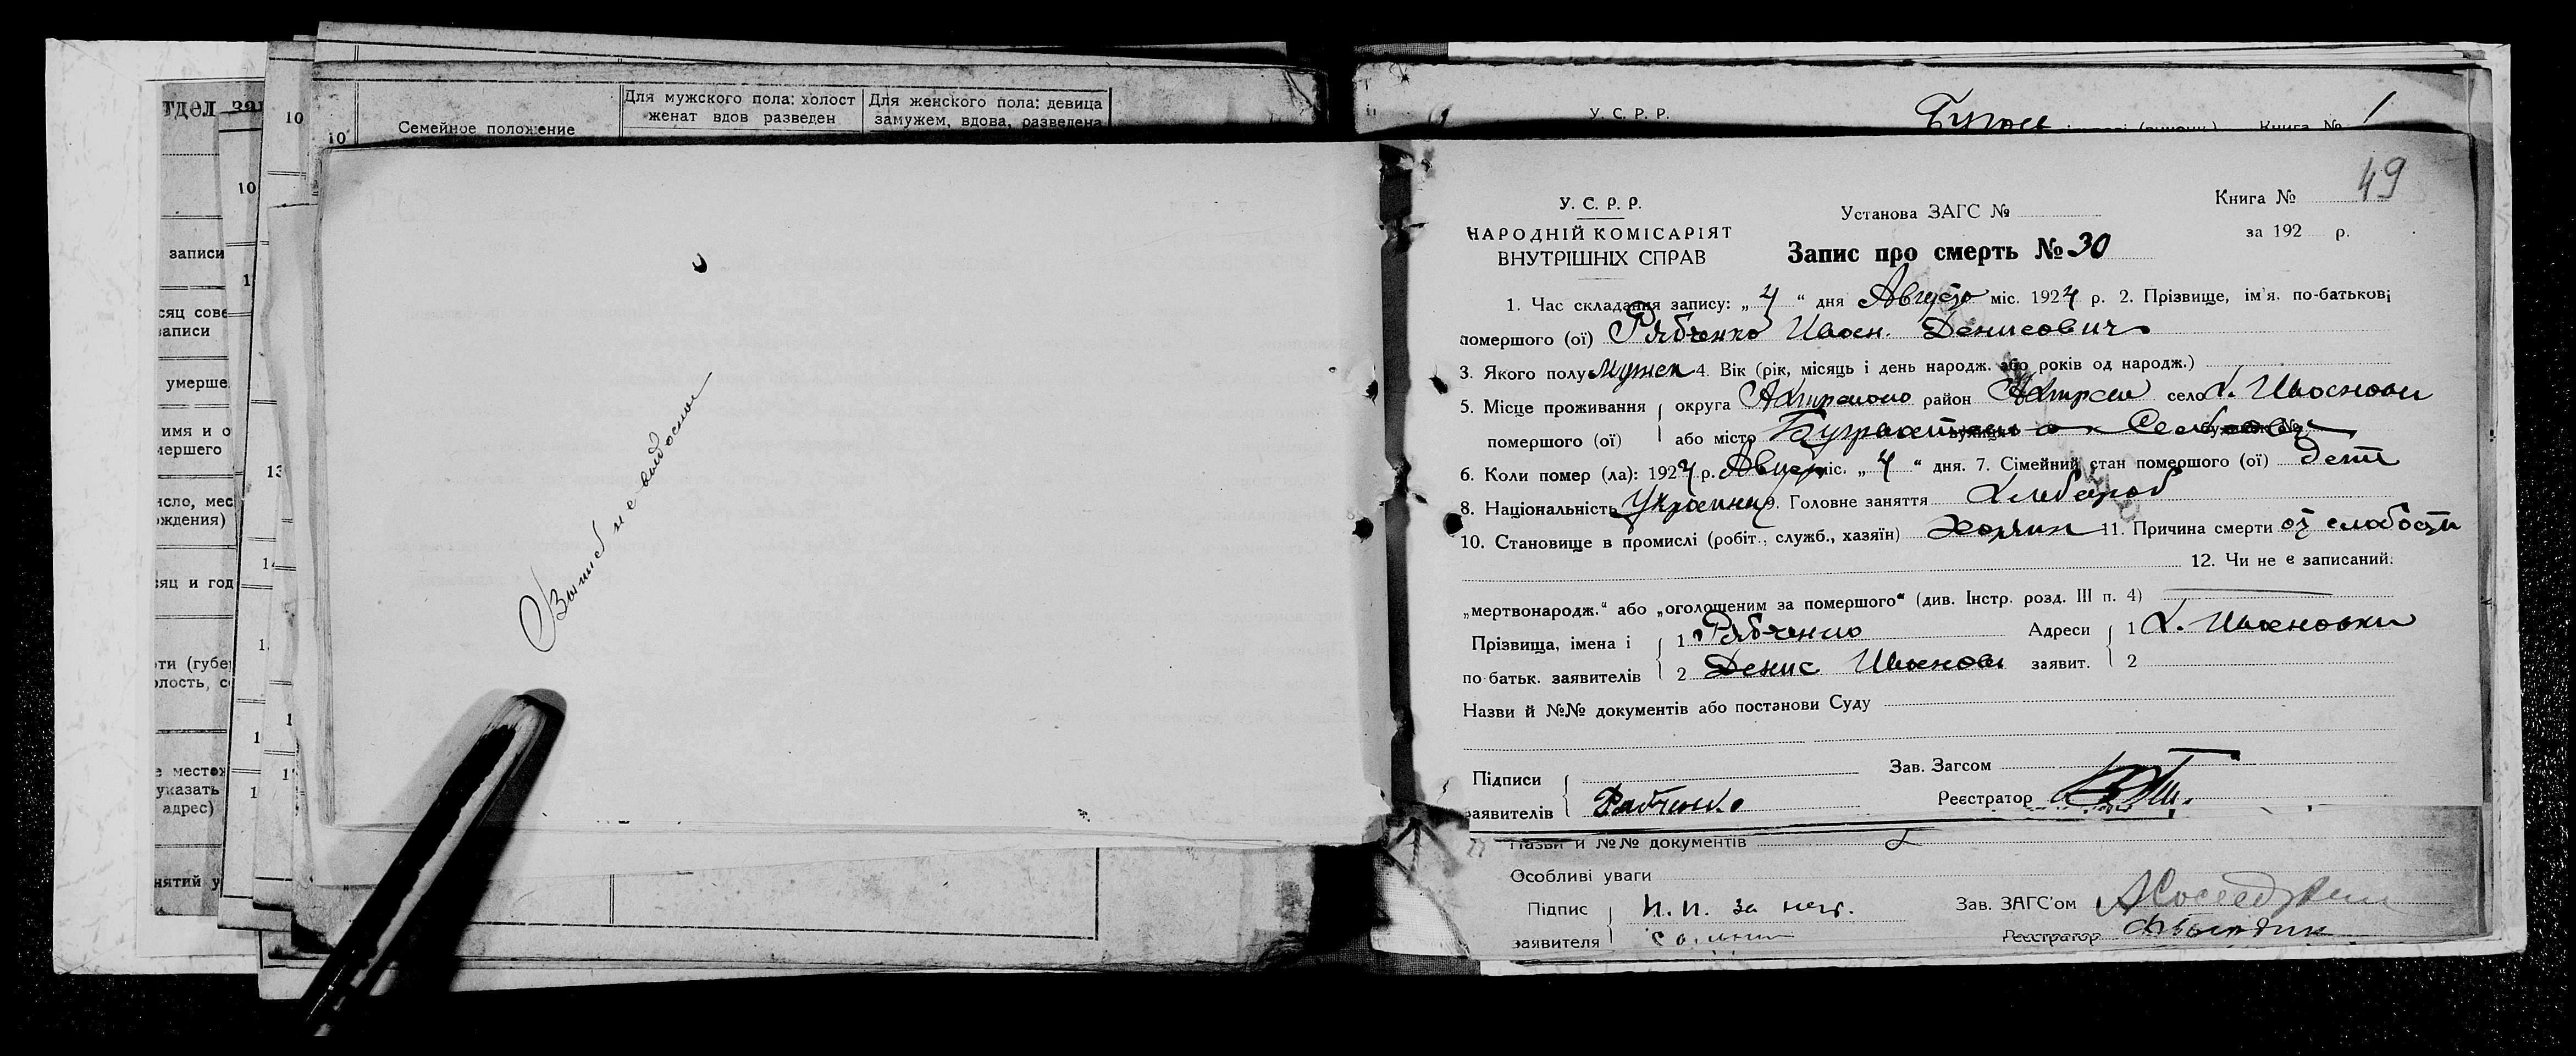 тдел за
10
10
записи
сяц сове
записи
умерше
имя и о
мершего
13
исло, мес
ождения)
яц и год
ти (губе
олость, с
е местож
указать
адрес)
нятий у
10
Семейное положение
Для мужского пола: холост
женат вдов разведен
Для женского пола: девица
замужем, вдова, разведена
не
У. С. Р. Р.
Книга №
49
У. С. Р. Р.
НАРОДНІЙ КОМІСАРІЯТ
ВНУТРІШНІХ СПРАВ
Установа ЗАГС №
Книга №
за 192 р.
Запис про смерть № 30
1. Час складання запису: „ 4 “ дня Августа міс. 1924 р. 2. Прізвище, ім'я, по-батькові
помершого (ої) Рябченко Иван Денисович
3. Якого полу мужск 4. Вік (рік, місяць і день народж. або років од народж.)
5. Місце проживання округа район село х. Ивановки
помершого (ої) або місто
6. Коли помер (ла): 1924 р. Август міс. „ 4 “ дня. 7. Сімейний стан помершого (ої) дети
8. Національність Украинец 9. Головне заняття Хлебороб
10. Становище в промислі (робіт., служб., хазяїн) Хозяин 11. Причина смерти от слабости
12. Чи не є записаний:
„мертвонародж.“ або „оголошеним за помершого“ (див. Інстр. розд. III п. 4)
Прізвища, імена і 1 Рябченко Адреси 1 х. Ивановки
по батьк. заявителів 2 Денис Иванов заявит. 2
Назви й №№ документів або постанови Суду
Підписи Зав. Загсом
заявителів Рабченко Реєстратор
Назви й №№ документів
Особливі уваги
Підпис за нег. Зав. ЗАГС'ом
заявителя Реєстратор